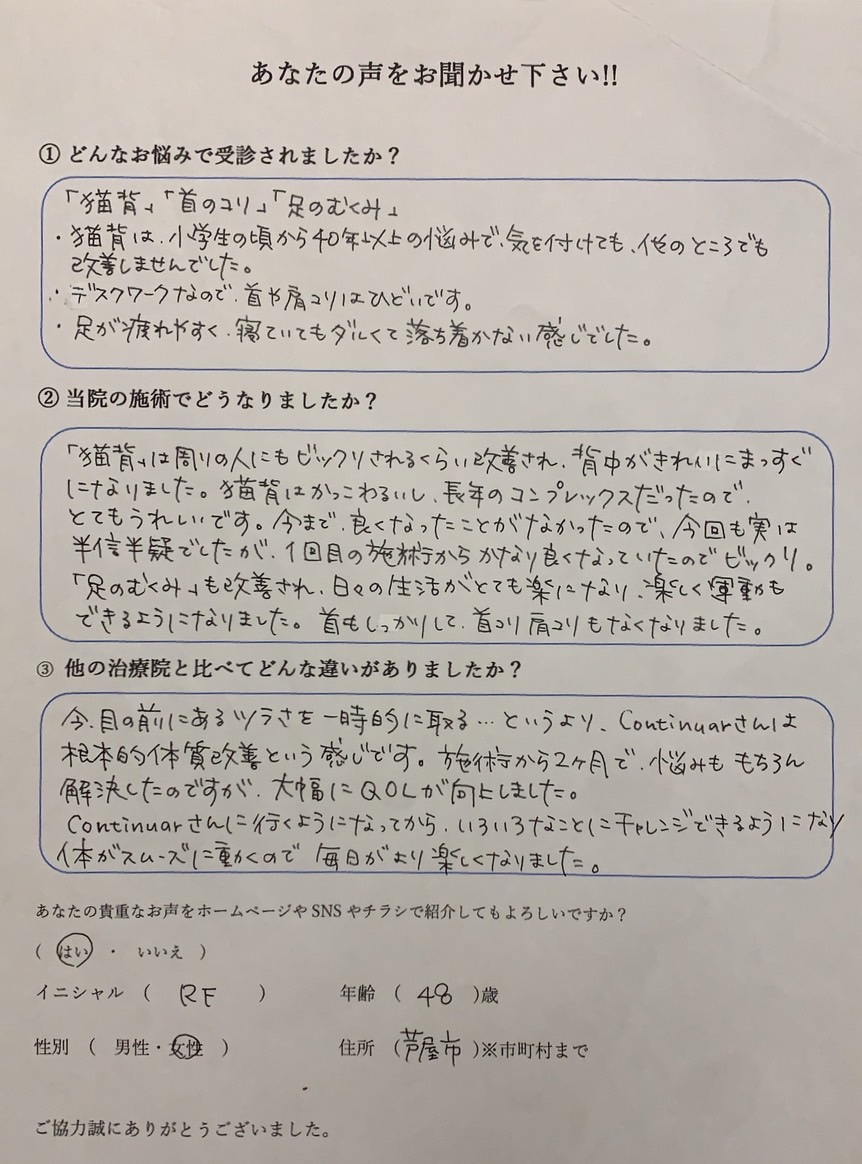 あなたの声をお聞かせ下さい!!
① どんなお悩みで受診されましたか？
「猫背」「首のコリ」「足のむくみ」
・猫背は、小学生の頃から40年以上の悩みで、気を付けても、他のところでも
改善しませんでした。
・デスクワークなので、首や肩コリはひどいです。
・足が疲れやすく、寝ていてもダルくて落ち着かない感じでした。
② 当院の施術でどうなりましたか？
「猫背」は周りの人にもビックリされるくらい改善され、背中がきれいにまっすぐ
になりました。猫背はかっこわるいし、長年のコンプレックスだったので、
とてもうれしいです。今まで、良くなったことがなかったので、今回も実は
半信半疑でしたが、1回目の施術からかなり良くなっていたのでビックリ。
「足のむくみ」も改善され、日々の生活がとても楽になり、楽しく運動も
できるようになりました。首もしっかりして、首コリ肩コリもなくなりました。
③ 他の治療院と比べてどんな違いがありましたか？
今、目の前にあるツラさを一時的に取る…というより、Continuarさんは
根本的体質改善という感じです。施術から2ヶ月で、悩みももちろん
解決したのですが、大幅にQOLが向上しました。
Continuarさんに行くようになってから、いろいろなことにチャレンジできるようになり
体がスムーズに動くので毎日がより楽しくなりました。
あなたの貴重なお声をホームページや SNS やチラシで紹介してもよろしいですか？
（ はい ・ いいえ ）
イニシャル （ RF ） 年齢 （ 48 ）歳
性別 （ 男性・女性 ） 住所 （芦屋市）※市町村まで
ご協力誠にありがとうございました。